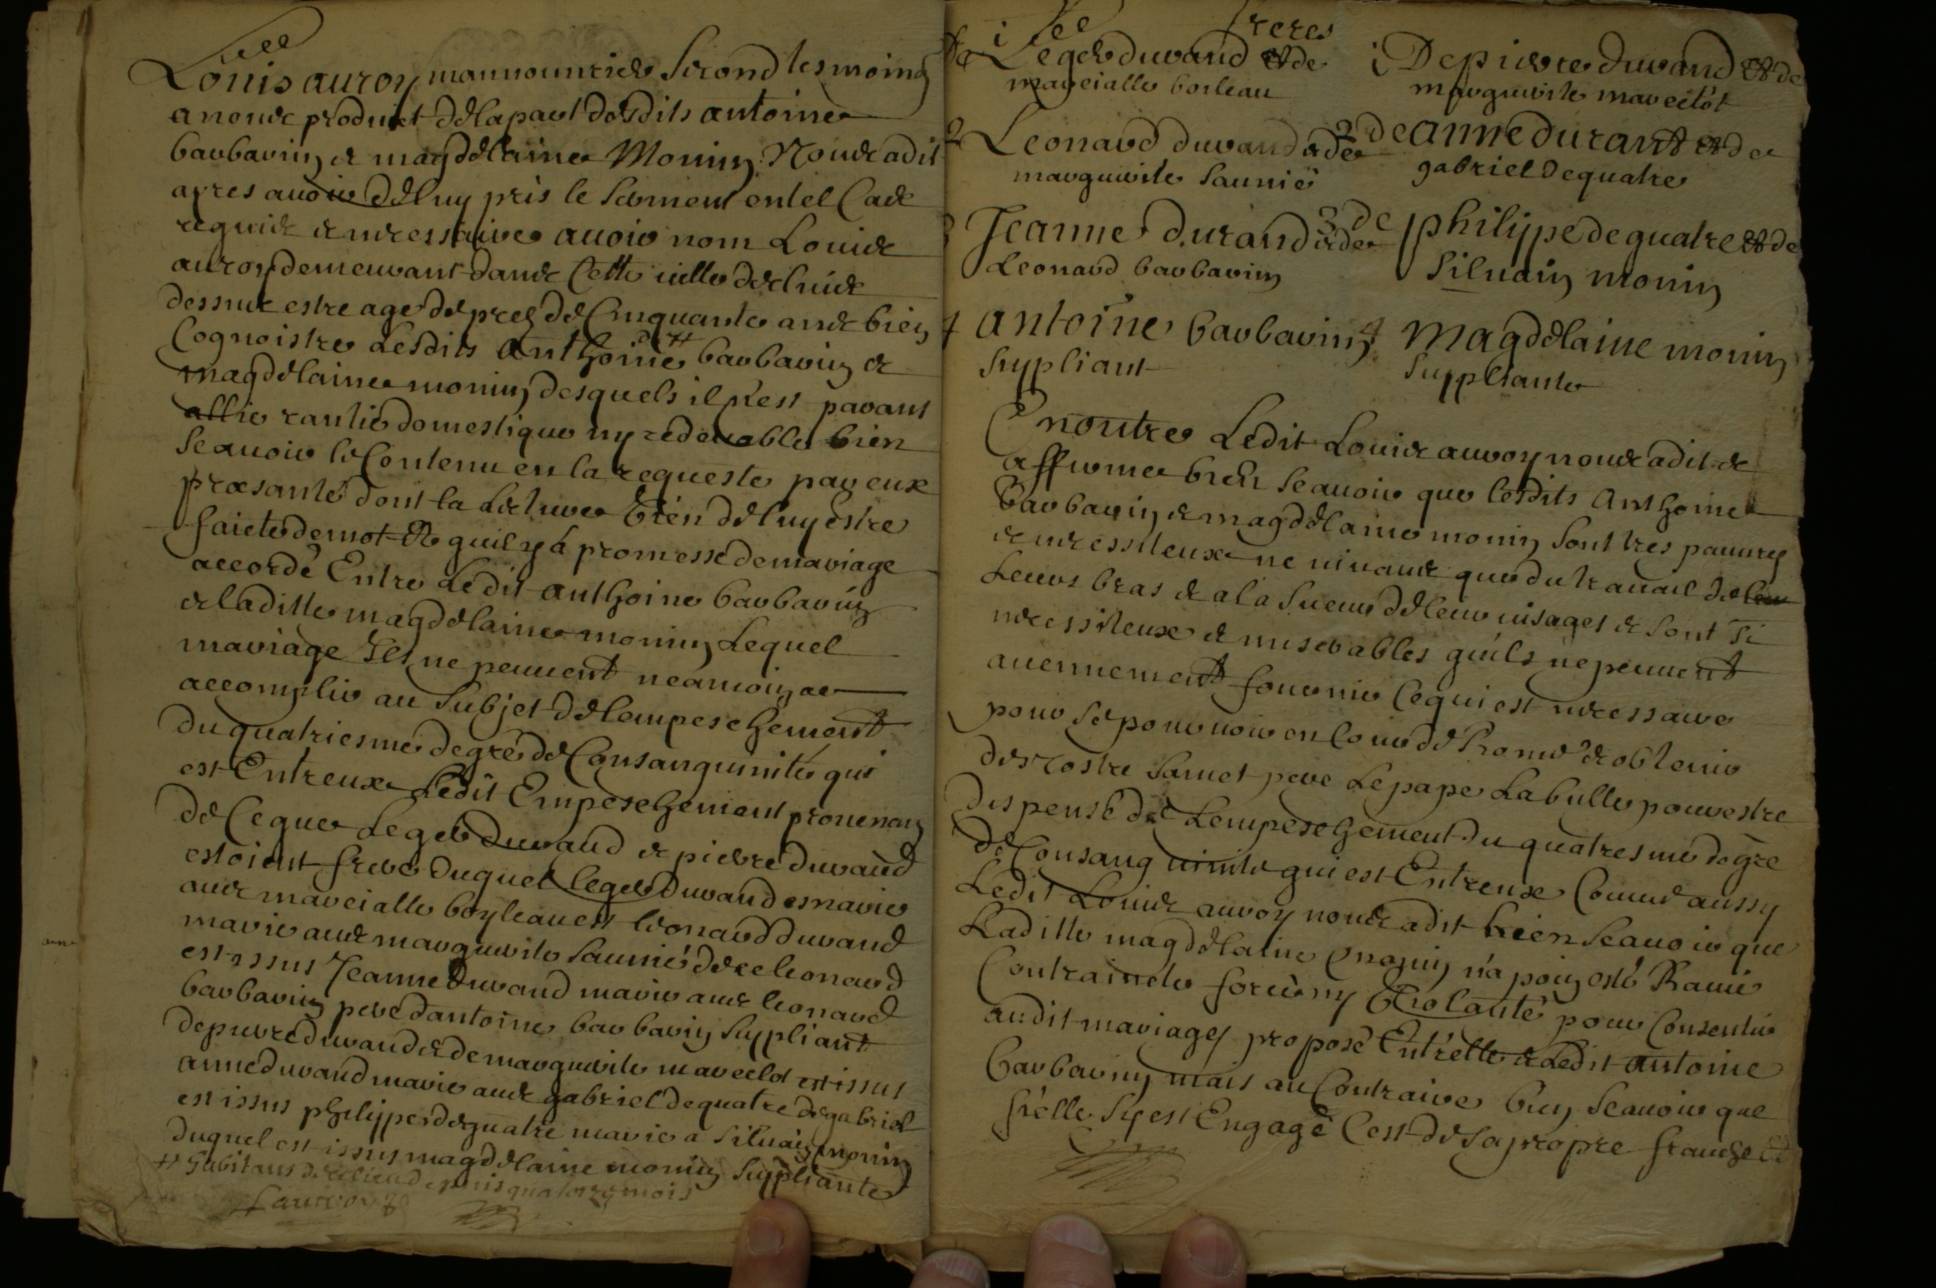 Louis auroy mannouvrier second tesmoing
a nous produit de la part desdits antoine
barbarin et magdelaine Monin Nous a dit
apres avoir de luy pris le serment en tel cas
requis et necessaire avoir nom Louis
auroy demeurant dans cette ville de
dessus estre agé de pres de Cinquante ans bien
Cognoistre lesdits Anthoine barbarin et
magdelaine monin desquels il n'est parant
allié domestique ny redevable bien
scavoir le Contenu en la requeste par eux
præsanté dont la lecture bien de luy estre
faicte de mot et quil y a promesse de mariage
accordé Entre Ledit anthoine barbarin
et laditte magdelaine monin Lequel
mariage Ils ne peuvent neamoin
accomplir au subjet de lempeschement
du quatriesme degré de Consanguinité qui
est Entreux Ledit Empeschement provenant
de Ceque Leger durand et pierre durand
estoient frere duquel leger durand marié
avec marcialle boyleau est leonard durand
marié avec marguerite saunié de ce leonard
est issus Jeanne durand mariee avec leonard
barbarin pere dantoine barbarin suppliant
de pierre durand et de marguerite marcelot est issus
anne durand mariee avec gabriel dequatre de gabriel
est issus philippe dequatre marié a silvain monin
duquel est issus magdelaine monin suppliante
habitans depuis quatorze mois
L auroy
freres
1 Leger durand et de
marcialle boileau
1 De pierre durand et de
marguerite marcelot
2 Leonard durand et de
marguerite saunié
2 de anne durant et de
gabriel Dequatre
3 Jeanne durand et de
Leonard barbarin
3 de philippe dequatre et de
silvain monin
4 antoine barbarin
suppliant
4 Magdelaine monin
suppliante
En outre Ledit Louis auroy nous a dit et
affirmé bien scavoir que lesdits Anthoine
barbarin et magdelaine monin sont tres pauvres
et necessiteux ne vivant que du travail de leur
Leurs bras et a la sueur de leur visages et sont si
necessiteux et miserables quils ne peuvent
aucunement fournir Ce qui est necessaire
pour se pourvoir en Cour de Rome et obtenir
de nostre sainct pere Le pape La bulle pour estre
dispensé de Lempeschement du quatresme degre
de Consanguinité qui est Entreux Comme aussy
Ledit Louis auroy nous a dit bien scavoir que
Laditte magdelaine monin n'a poin esté Ravie
Contraincte forcé ny violanté pour Consentir
audit mariage proposé Entrelle et Ledit antoine
barbarin mais au Contraire bien scavoir que
sielle sy est Engagé Cest de sa propre franche et